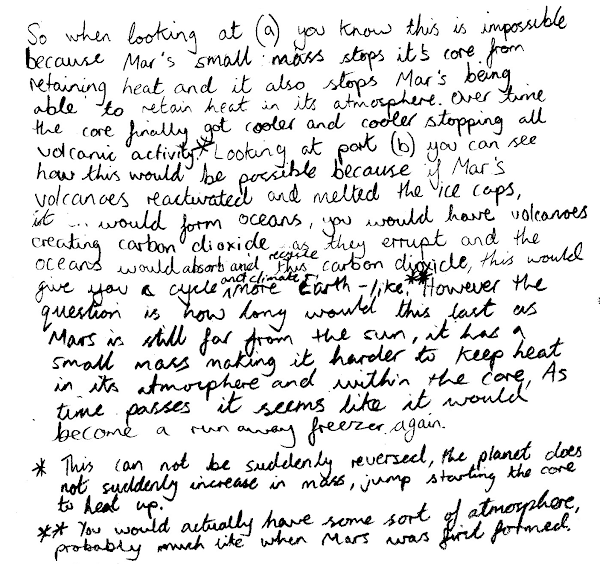 So when looking at (a) you know this is impossible
because Mar's small mass stops it's core from
retaining heat and it also stops Mar's being
able to retain heat in its atmosphere. Over time
the core finally got cooler and cooler stopping all
volcanic activity.* Looking at part (b) you can see
how this would be possible because if Mar's
volcanoes reactivated and melted the ice caps,
it would form oceans, you would have volcanoes
creating carbon dioxide as they errupt and the
oceans would absorb and recycle this carbon dioxide, this would
give you a cycle and climate more Earth-like.** However the
question is how long would this last as
Mars is still far from the sun, it has a
small mass making it harder to keep heat
in its atmosphere and within the core, As
time passes it seems like it would
become a run away freezer again.
* This can not be suddenly reversed, the planet does
not suddenly increase in mass, jump starting the core
to heat up.
** You would actually have some sort of atmosphere,
probably much like when Mars was first formed.